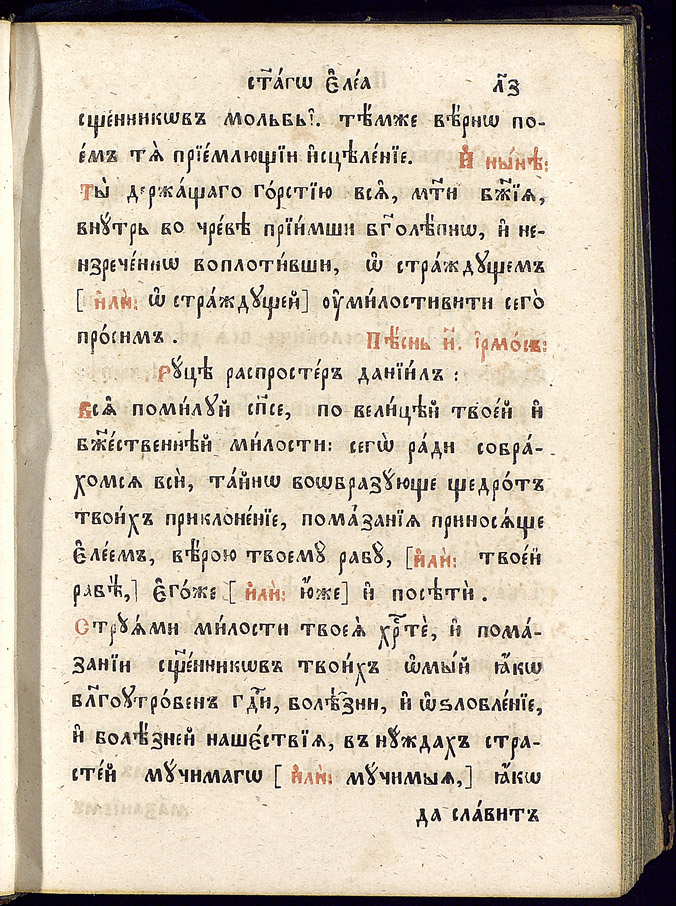 ст҃а́гѡ є҆ле́а л҃з
сщ҃е́нникѡвъ мольбы̀. тѣ́мже вѣ́рнѡ по-
е́мъ тѧ̀ прїе́млющїи и҆сцѣле́нїе. И҆ ны́нѣ:
Ты̀ держа́щаго го́рстїю всѧ̑, мт҃и бж҃їѧ,
внꙋ́трь во чре́вѣ прїи́мши бг҃олѣ́пнѡ, и҆ не-
изрече́ннѡ воплоти́вши, ѡ҆ стра́ждꙋщемъ
[и҆лѝ: ѡ҆ стра́ждꙋщей] ᲂу҆ми́лостивити сего̀
про́симъ. Пѣ́снь и҃. і҆рмо́съ:
Рꙋцѣ̀ распросте́ръ данїи́лъ:
Всѧ̑ поми́лꙋй сп҃се, по вели́цѣй твое́й и҆
бж҃е́ственнѣй ми́лости: сегѡ̀ ра́ди собра́-
хомсѧ всѝ, та́йнѡ воѡбразꙋ́юще щедро́тъ
твои́хъ приклоне́нїе, пома́занїѧ принося́ще
є҆ле́емъ, вѣ́рою твоемꙋ̀ рабꙋ̀, [и҆лѝ: твое́й
рабѣ̀,] є҆го́же [и҆лѝ: ю҆́же] и҆ посѣтѝ.
Стрꙋѧ́ми ми́лости твоеѧ̀ хрⷭ҇тѐ, и҆ пома́-
занїи сщ҃е́нникѡвъ твои́хъ ѡ҆мы́й ꙗ҆́кѡ
бл҃гоꙋтро́бенъ гдⷭ҇и, болѣ́зни, и҆ ѡ҆ѕлобле́нїе,
и҆ болѣ́зней наше́ствїѧ, въ нꙋ́ждахъ стра-
сте́й мꙋ́чимагѡ [и҆лѝ: мꙋ́чимыѧ,] ꙗ҆́кѡ
да сла́витъ